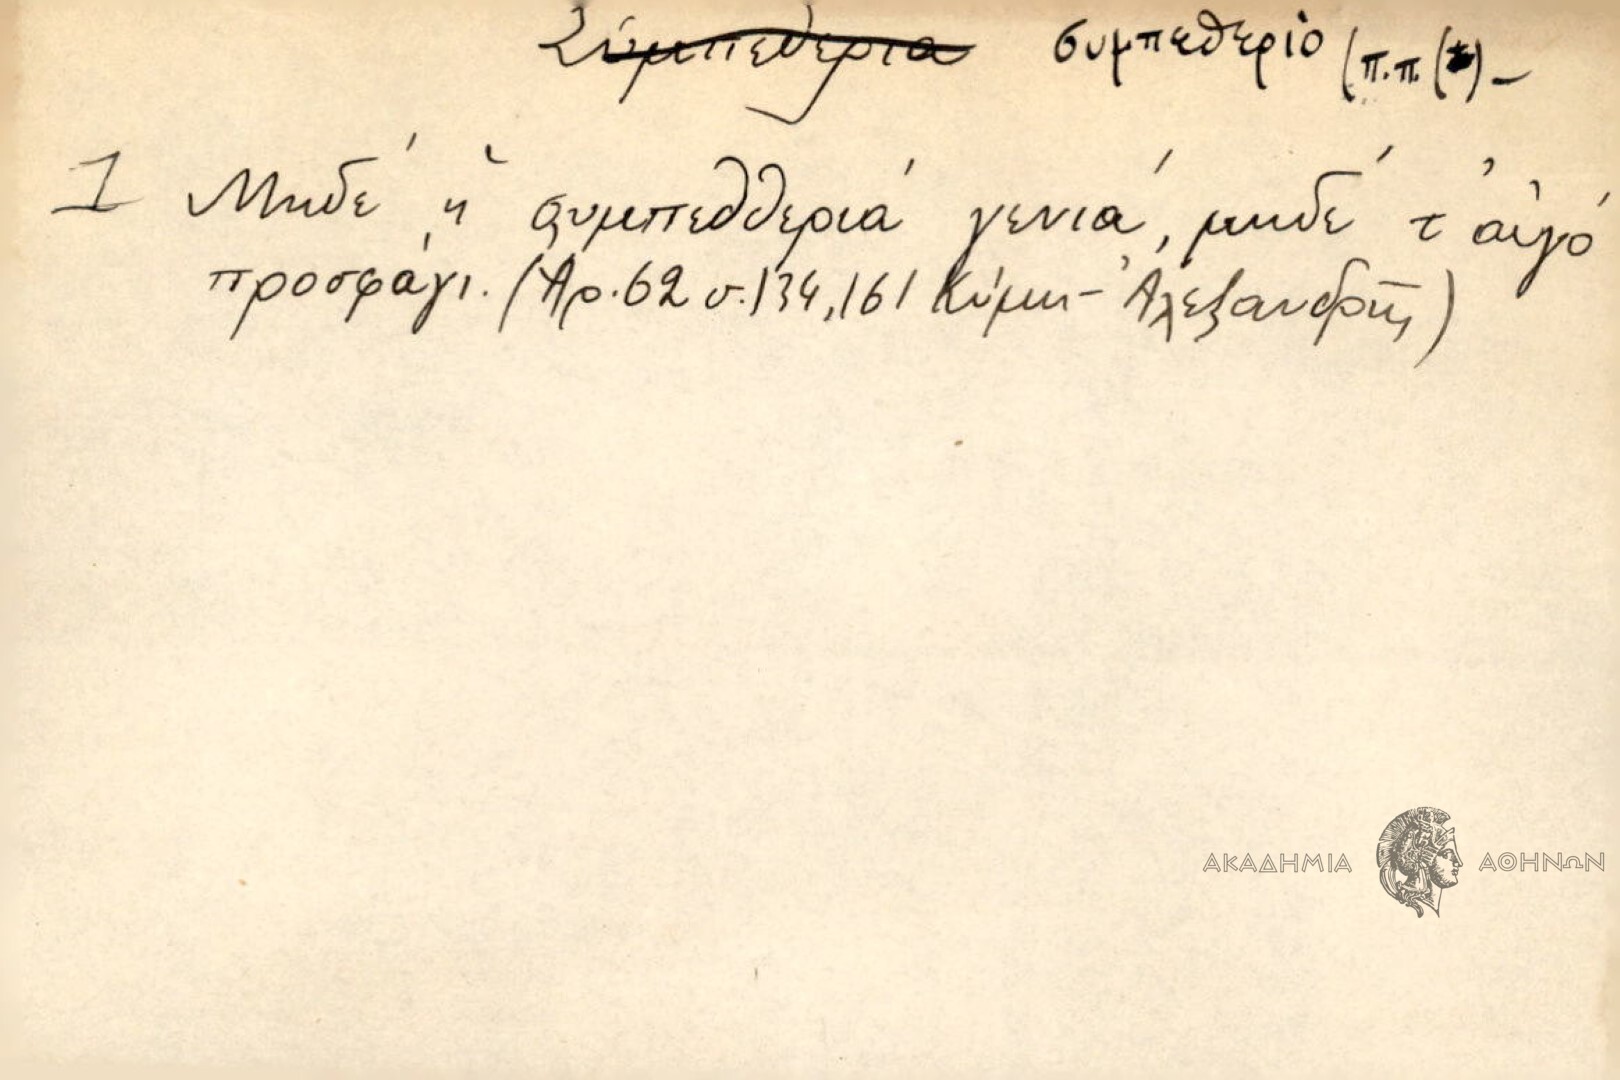 Συμπεθεριά συμπεθεριό (π.π. () –
1 Μηδέ ἡ συμπεθθεριά γενιά, μηδέ τ' αἰγό
προσφάγι. (Ἀρ. 62 σ. 134, 161 Κύμη – Ἀλεξανδρῆς)
ΑΚΑΔΗΜΙΑ ΑΘΗΝΩΝ